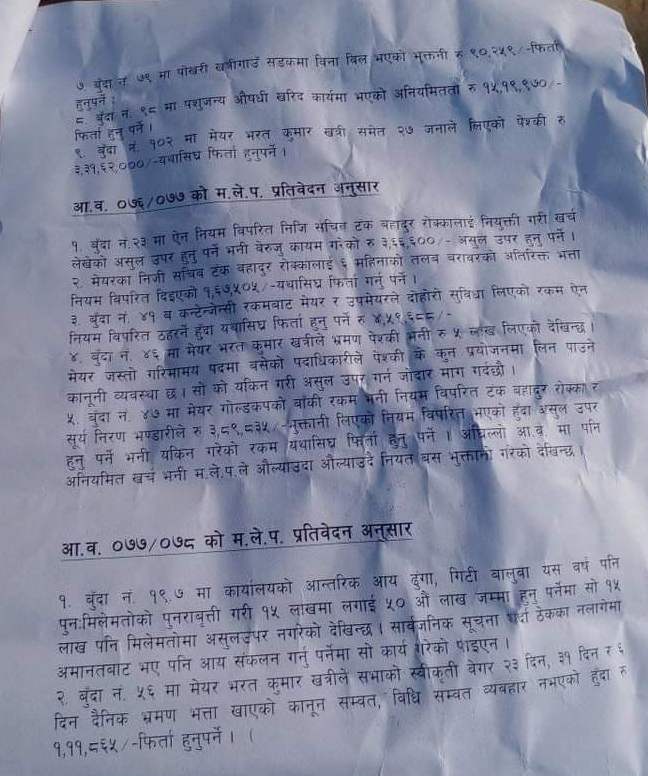 ७ बुंदा नं ७९ मा पोखरी खत्रीगाउँ सडकमा विना बिल भएको भुक्तानी रु ९०,२५९/-फिर्ता
हुनुपर्ने ।
८. बुंदा नं. ९८ मा पशुजन्य औषधी खरिद कार्यमा भएको अनियमितता रु १५,१९,९७०/-
फिर्ता हुनु पर्ने ।
९. बुंदा नं. १०२ मा मेयर भरत कुमार खत्री समेत २७ जनाले लिएको पेश्की रु
३,३१,६२,०००/-यथासिघ्र फिर्ता हुनुपर्ने ।
आ.व. ०७६/०७७ को म.ले.प. प्रतिवेदन अनुसार
१. बुंदा नं.२३ मा ऐन नियम विपरित निजि सचिव टंक बहादुर रोक्कालाई नियुक्ती गरी खर्च
लेखेको असुल उपर हुनु पर्ने भनी बेरुजु कायम गरेको रु ३,६६,६००/- असुल उपर हुनु पर्ने ।
२. मेयरका निजी सचिव टंक बहादुर रोक्कालाई ६ महिनाको तलब बराबरको अतिरिक्त भत्ता
नियम विपरित दिइएको १,६७,५०५/-यथासिघ्र फिर्ता गर्नु पर्ने ।
३. बुंदा नं. ४१ ब कन्टेन्जेन्सी रकमबाट मेयर र उपमेयरले दोहोरो सुविधा लिएको रकम ऐन
नियम विपरित ठहरर्ने हुँदा यथासिघ्र फिर्ता हुनु पर्ने रु ४,५९,६८८/-
४. बुंदा नं. ४६ मा मेयर भरत कुमार खत्रीले भ्रमण पेश्की भनी रु ५ लाख लिएको देखिन्छ ।
मेयर जस्तो गरिमामय पदमा बसेको पदाधिकारीले पेश्की के कुन प्रयोजनमा लिन पाउने
कानूनी व्यवस्था छ । सो को यकिन गरी असुल उपर गर्न जोदार माग गर्दछौ ।
५. बुंदा नं. ४७ मा मेयर गोल्डकपको बाँकी रकम भनी नियम विपरित टंक बहादुर रोक्का र
सूर्य निरण भण्डारीले रु ३,८९,८३५/-भुक्तानी लिएको नियम विपरित भएको हुँदा असुल उपर
हुनु पर्ने भनी यकिन गरेको रकम यथासिघ्र फिर्ता हुनु पर्ने । अघिल्लो आ.व. मा पनि
अनियमित खर्च भनी म.ले.प.ले औल्याउदा औल्याउदै नियत बस भुक्तानी गरेको देखिन्छ ।
आ.व. ०७७/०७८ को म.ले.प. प्रतिवेदन अनुसार
१. बुंदा नं. १९.७ मा कार्यालयको आन्तरिक आय ढुंगा, गिटी बालुबा यस वर्ष पनि
पुन:मिलेमतोको पुनराबृत्ती गरी १५ लाखमा लगाई ५० औं लाख जम्मा हुनु पर्नेमा सो १५
लाख पनि मिलेमतोमा असुलउपर नगरेको देखिन्छ । सार्वजनिक सूचना गर्दा ठेकका नलागेमा
अमानतबाट भए पनि आय संकलन गर्नु पर्नेमा सो कार्य गरेको पाइएन ।
२. बुंदा नं. ५६ मा मेयर भरत कुमार खत्रीले सभाको स्वीकृती बेगर २३ दिन, ३१ दिन र ६
दिन दैनिक भ्रमण भत्ता खाएको कानून सम्वत, विधि सम्वत व्यवहार नभएको हुँदा रु
१,११,८६५/-फिर्ता हुनुपर्ने ।